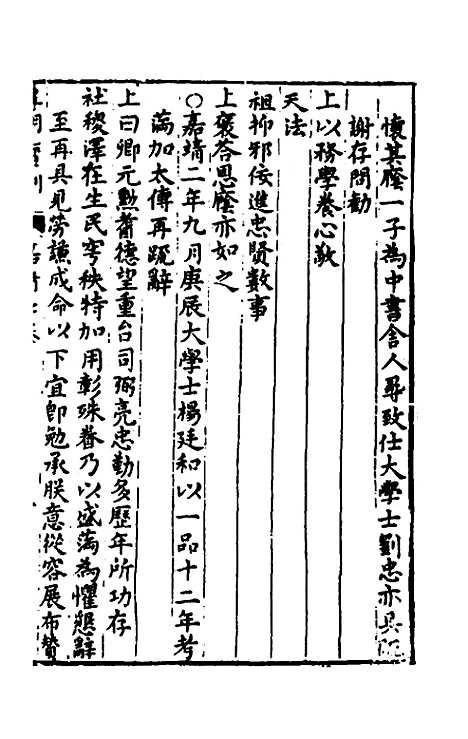 懷其廕一子為中書舍人尋致仕大學士劉忠亦具疏
謝存問勸
上以務學養心敬
天法
祖抑邪佞進忠賢數事
上褒荅恩廕亦如之
○嘉靖二年九月庚辰大學士楊廷和以一品十二年考
滿加太傅再䟽辭
上曰卿元勲蓍德望重台司弼亮忠勤多歷年所功存
社稷澤在生民穹秩特加用彰殊眷乃以盛滿為懼懇辭
至再具見勞謙成命以下宜卽勉承朕意從容展布贊